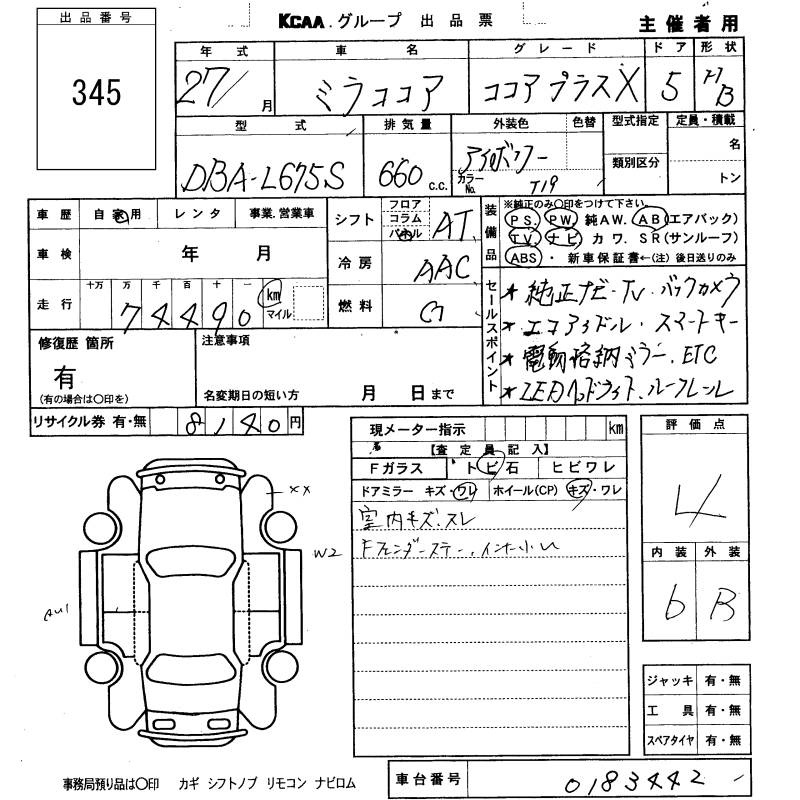 出品番号
345
KCAA.グループ 出品票
主催者用
年式 車名 グレード ドア 形状
27/月 ミラココア ココアプラスX 5 HB
型式 排気量 外装色 色替 型式指定 定員・積載
DBA-L675S 660 c.c. アイボリー 名
カラーNo. T19 類別区分 トン
車歴 自家用 レンタ 事業.営業車
車検 年 月
走行 十万 万 千 百 十 一
74490 km マイル
シフト フロア コラム パネル AT
冷房 AAC
燃料 ガ
装備品
※純正のみ○印をつけて下さい。
PS. PW. 純AW. AB(エアバック)
TV. ナビ カワ. SR(サンルーフ)
ABS・新車保証書←(注)後日送りのみ
セールスポイント
★純正ナビ・TV・バックカメラ
★エコアイドル・スマートキー
★電動格納ミラー.ETC
★LEDヘッドライト.ルーフレール
修復歴 箇所
有
(有の場合は○印を)
注意事項
名変期日の短い方 月 日まで
リサイクル券 有・無 8140円
現メーター指示 km
【査定員記入】
Fガラス トビ石 ヒビワレ
ドアミラー キズ・ワレ ホイール(CP) キズ・ワレ
室内キズ.スレ
Fフェンダーステー.インナー小U
評価点
4
内装 外装
b B
XX
W2
AU1
ジャッキ 有・無
工具 有・無
スペアタイヤ 有・無
事務局預り品は○印 カギ シフトノブ リモコン ナビロム
車台番号 0183442